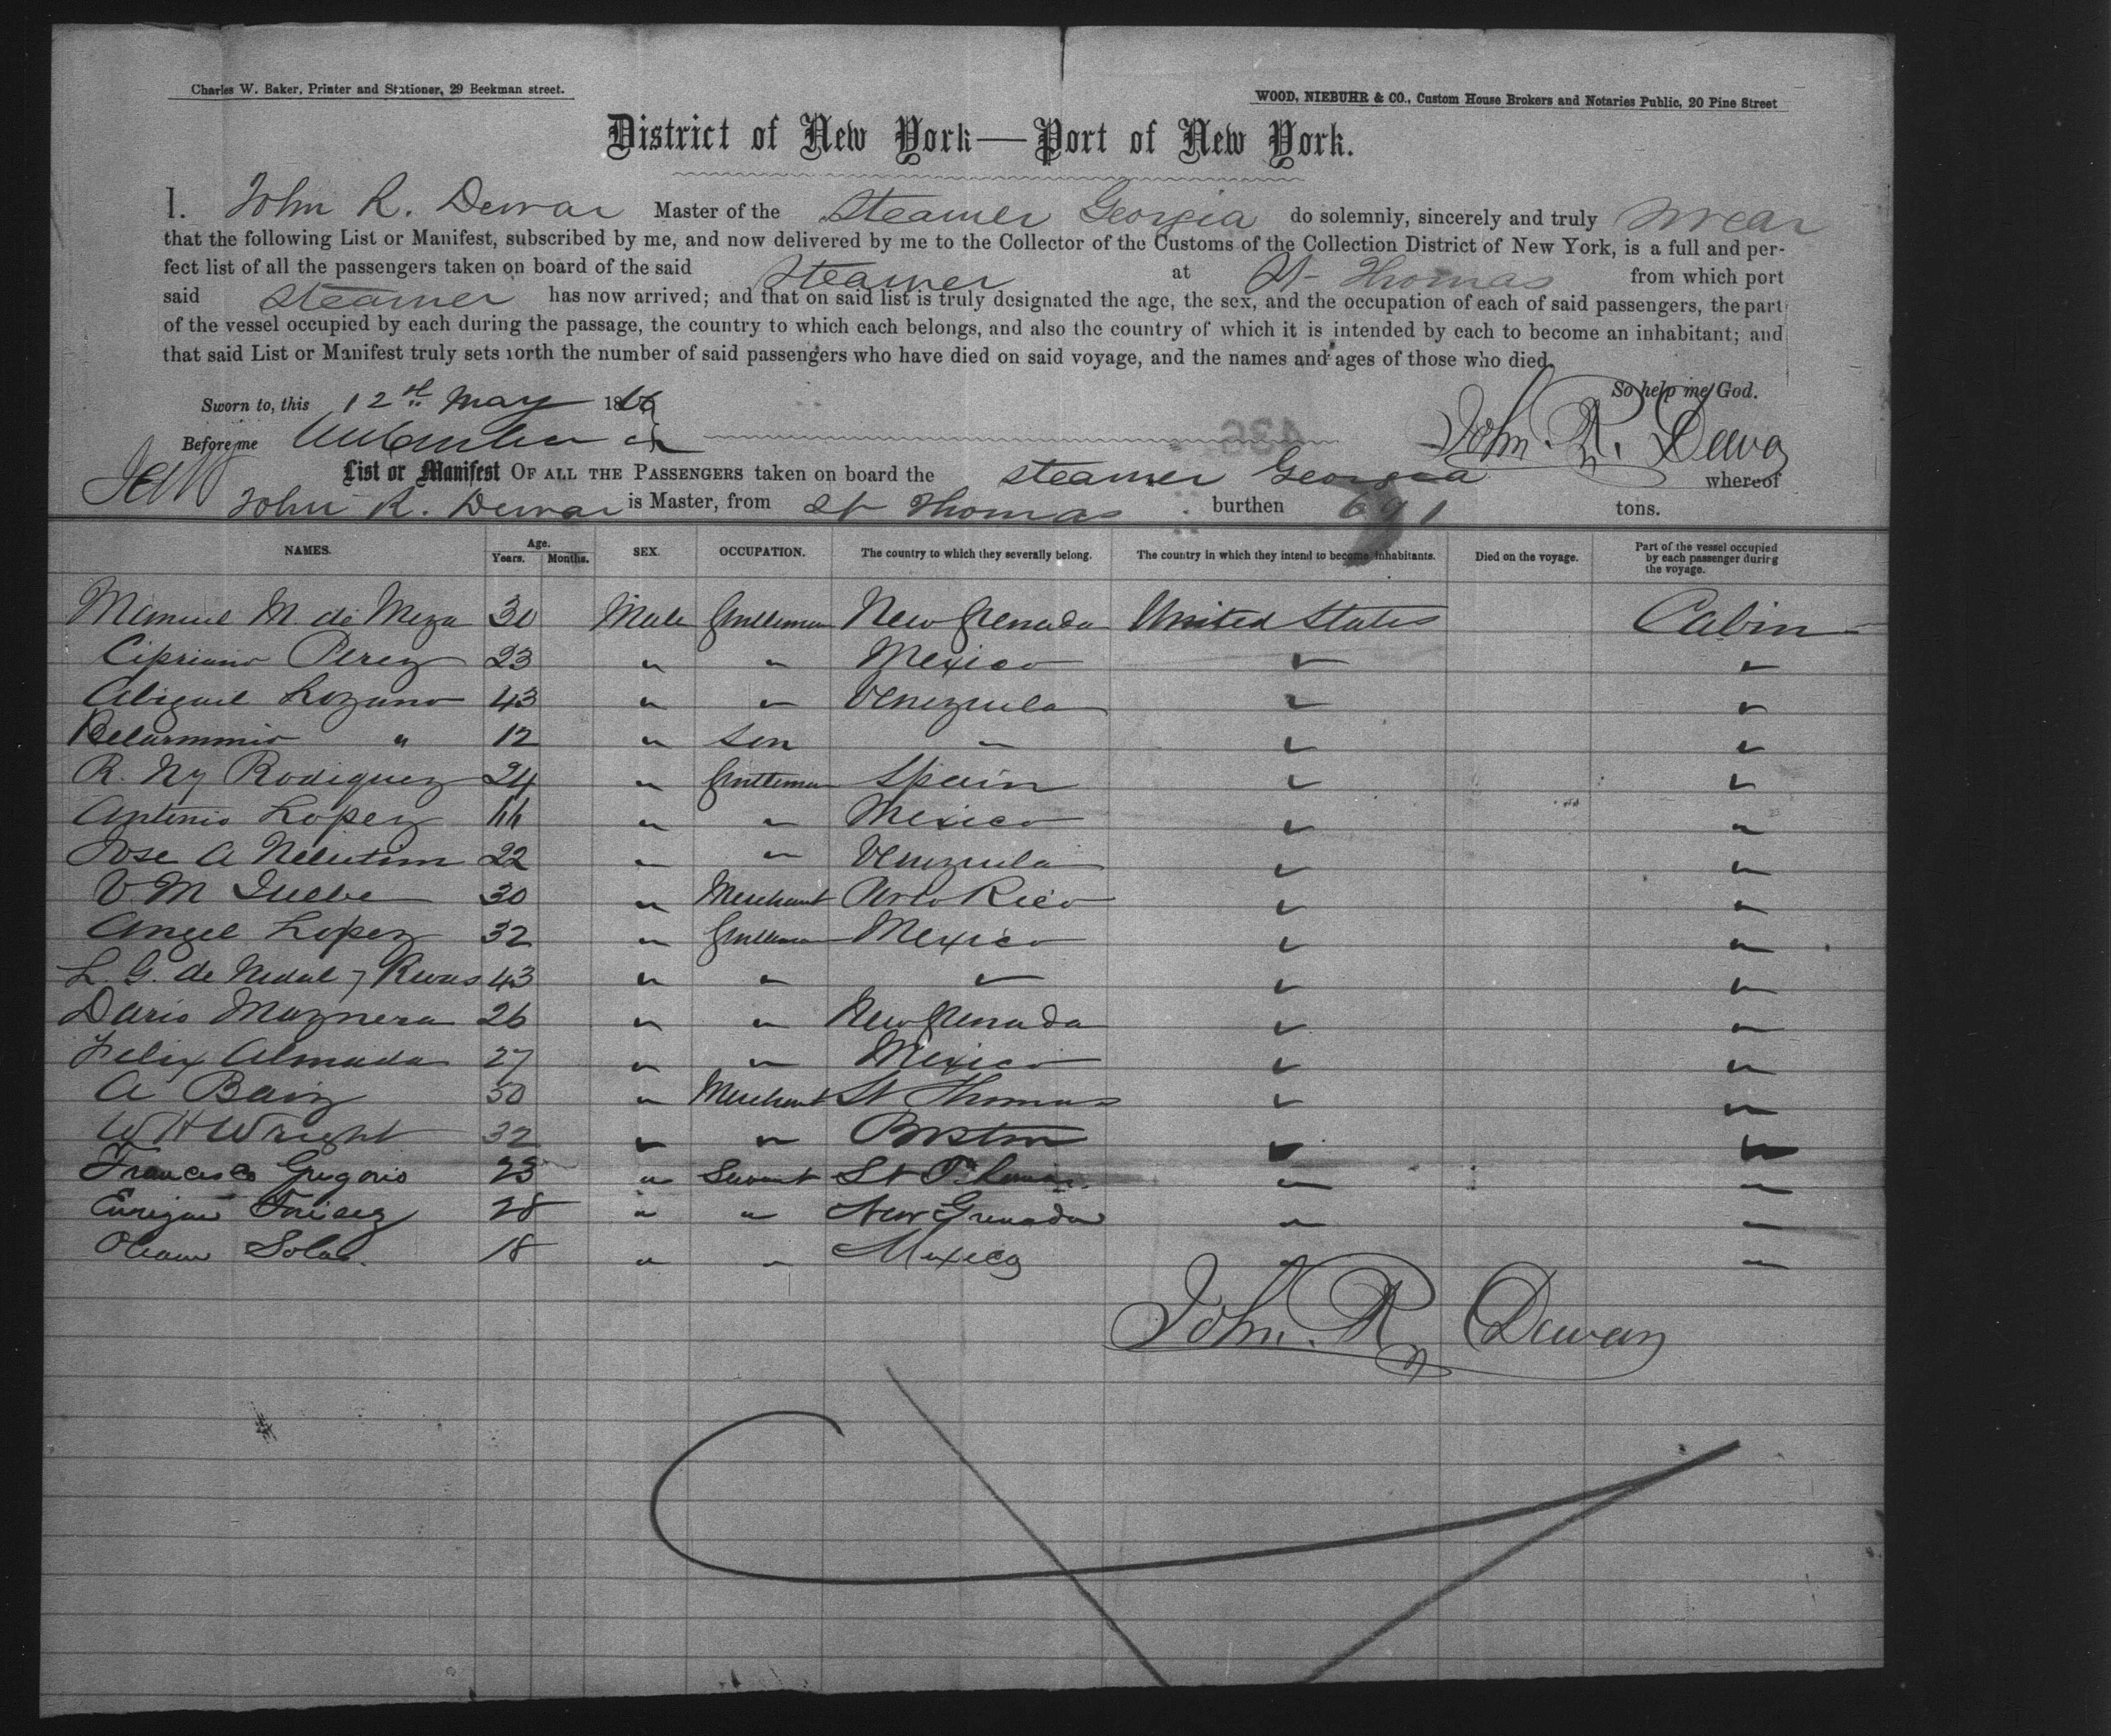 Charles W. Baker, Printer and Stationer, 29 Beekman street.
WOOD, NIEBUHR & CO., Custom House Brokers and Notaries Public, 20 Pine Street
District of New York—Port of New York.
I. John R. Dewar Master of the Steamer Georgia do solemnly, sincerely and truly swear
that the following List or Manifest, subscribed by me, and now delivered by me to the Collector of the Customs of the Collection District of New York, is a full and per-
fect list of all the passengers taken on board of the said Steamer at St Thomas from which port
said steamer has now arrived; and that on said list is truly designated the age, the sex, and the occupation of each of said passengers, the part
of the vessel occupied by each during the passage, the country to which each belongs, and also the country of which it is intended by each to become an inhabitant; and
that said List or Manifest truly sets forth the number of said passengers who have died on said voyage, and the names and ages of those who died.
So help me God.
Sworn to, this 12th May 1866
Before me John R. Dewar
List or Manifest OF ALL THE PASSENGERS taken on board the steamer Georgia whereof
John R. Dewar is Master, from St Thomas burthen 691 tons.
NAMES. Age. Years. Months. SEX. OCCUPATION. The country to which they severally belong. The country in which they intend to become inhabitants. Died on the voyage. Part of the vessel occupied by each passenger during the voyage.
Manuel M. de Meza 30 Male Gentleman New Grenada United States Cabin
Cipriano Perez 23 " " Mexico " "
Abigail Lozano 43 " " Venezuela " "
Belarmino " 12 " Son " " "
R. Ny Rodiguez 24 " Gentleman Spain " "
Antonio Lopez " " Mexico " "
Jose A 22 " " Venezuela " "
V. M 30 " Merchant Porto Rico " "
Angel Lopez 32 " Gentleman Mexico " "
L. G. de y Rivas 43 " " " " "
Dario Maznera 26 " " New Grenada " "
Felix Almada 27 " " Mexico " "
A Baiz 50 " Merchant St Thomas " "
W H Wright 32 " " Boston " "
Francisco Gregorio 23 " Servant St Thomas " "
28 " " New Grenada " "
18 " " Mexico " "
John R Dewar